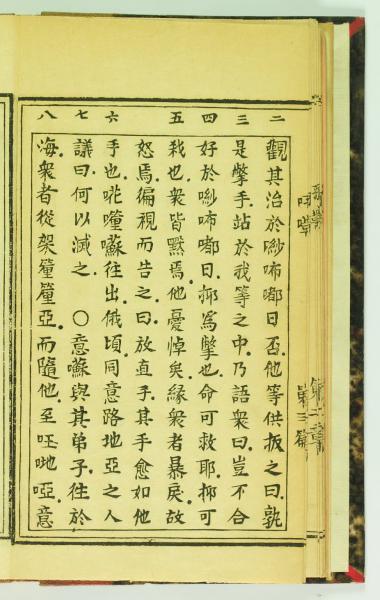 二 三 四 五 六 七 八
觀其治於唦咘嘟日否.他等供扳之曰.孰
是擘手站於我等之中.乃語衆曰.豈不合
好於唦咘嘟日.抑為擘也.命可救耶.抑可
殺也.衆皆黙焉.他憂悼矣.緣衆者暴戾.故
怒焉.徧視而告之曰.放直手.其手愈如他
手也.囌往出.俄頃.同意路地亞之人
議曰.何以滅之 〇意囌與其弟子.往於
海.衆者從亞.而隨他.至哋啞.意
第三篇